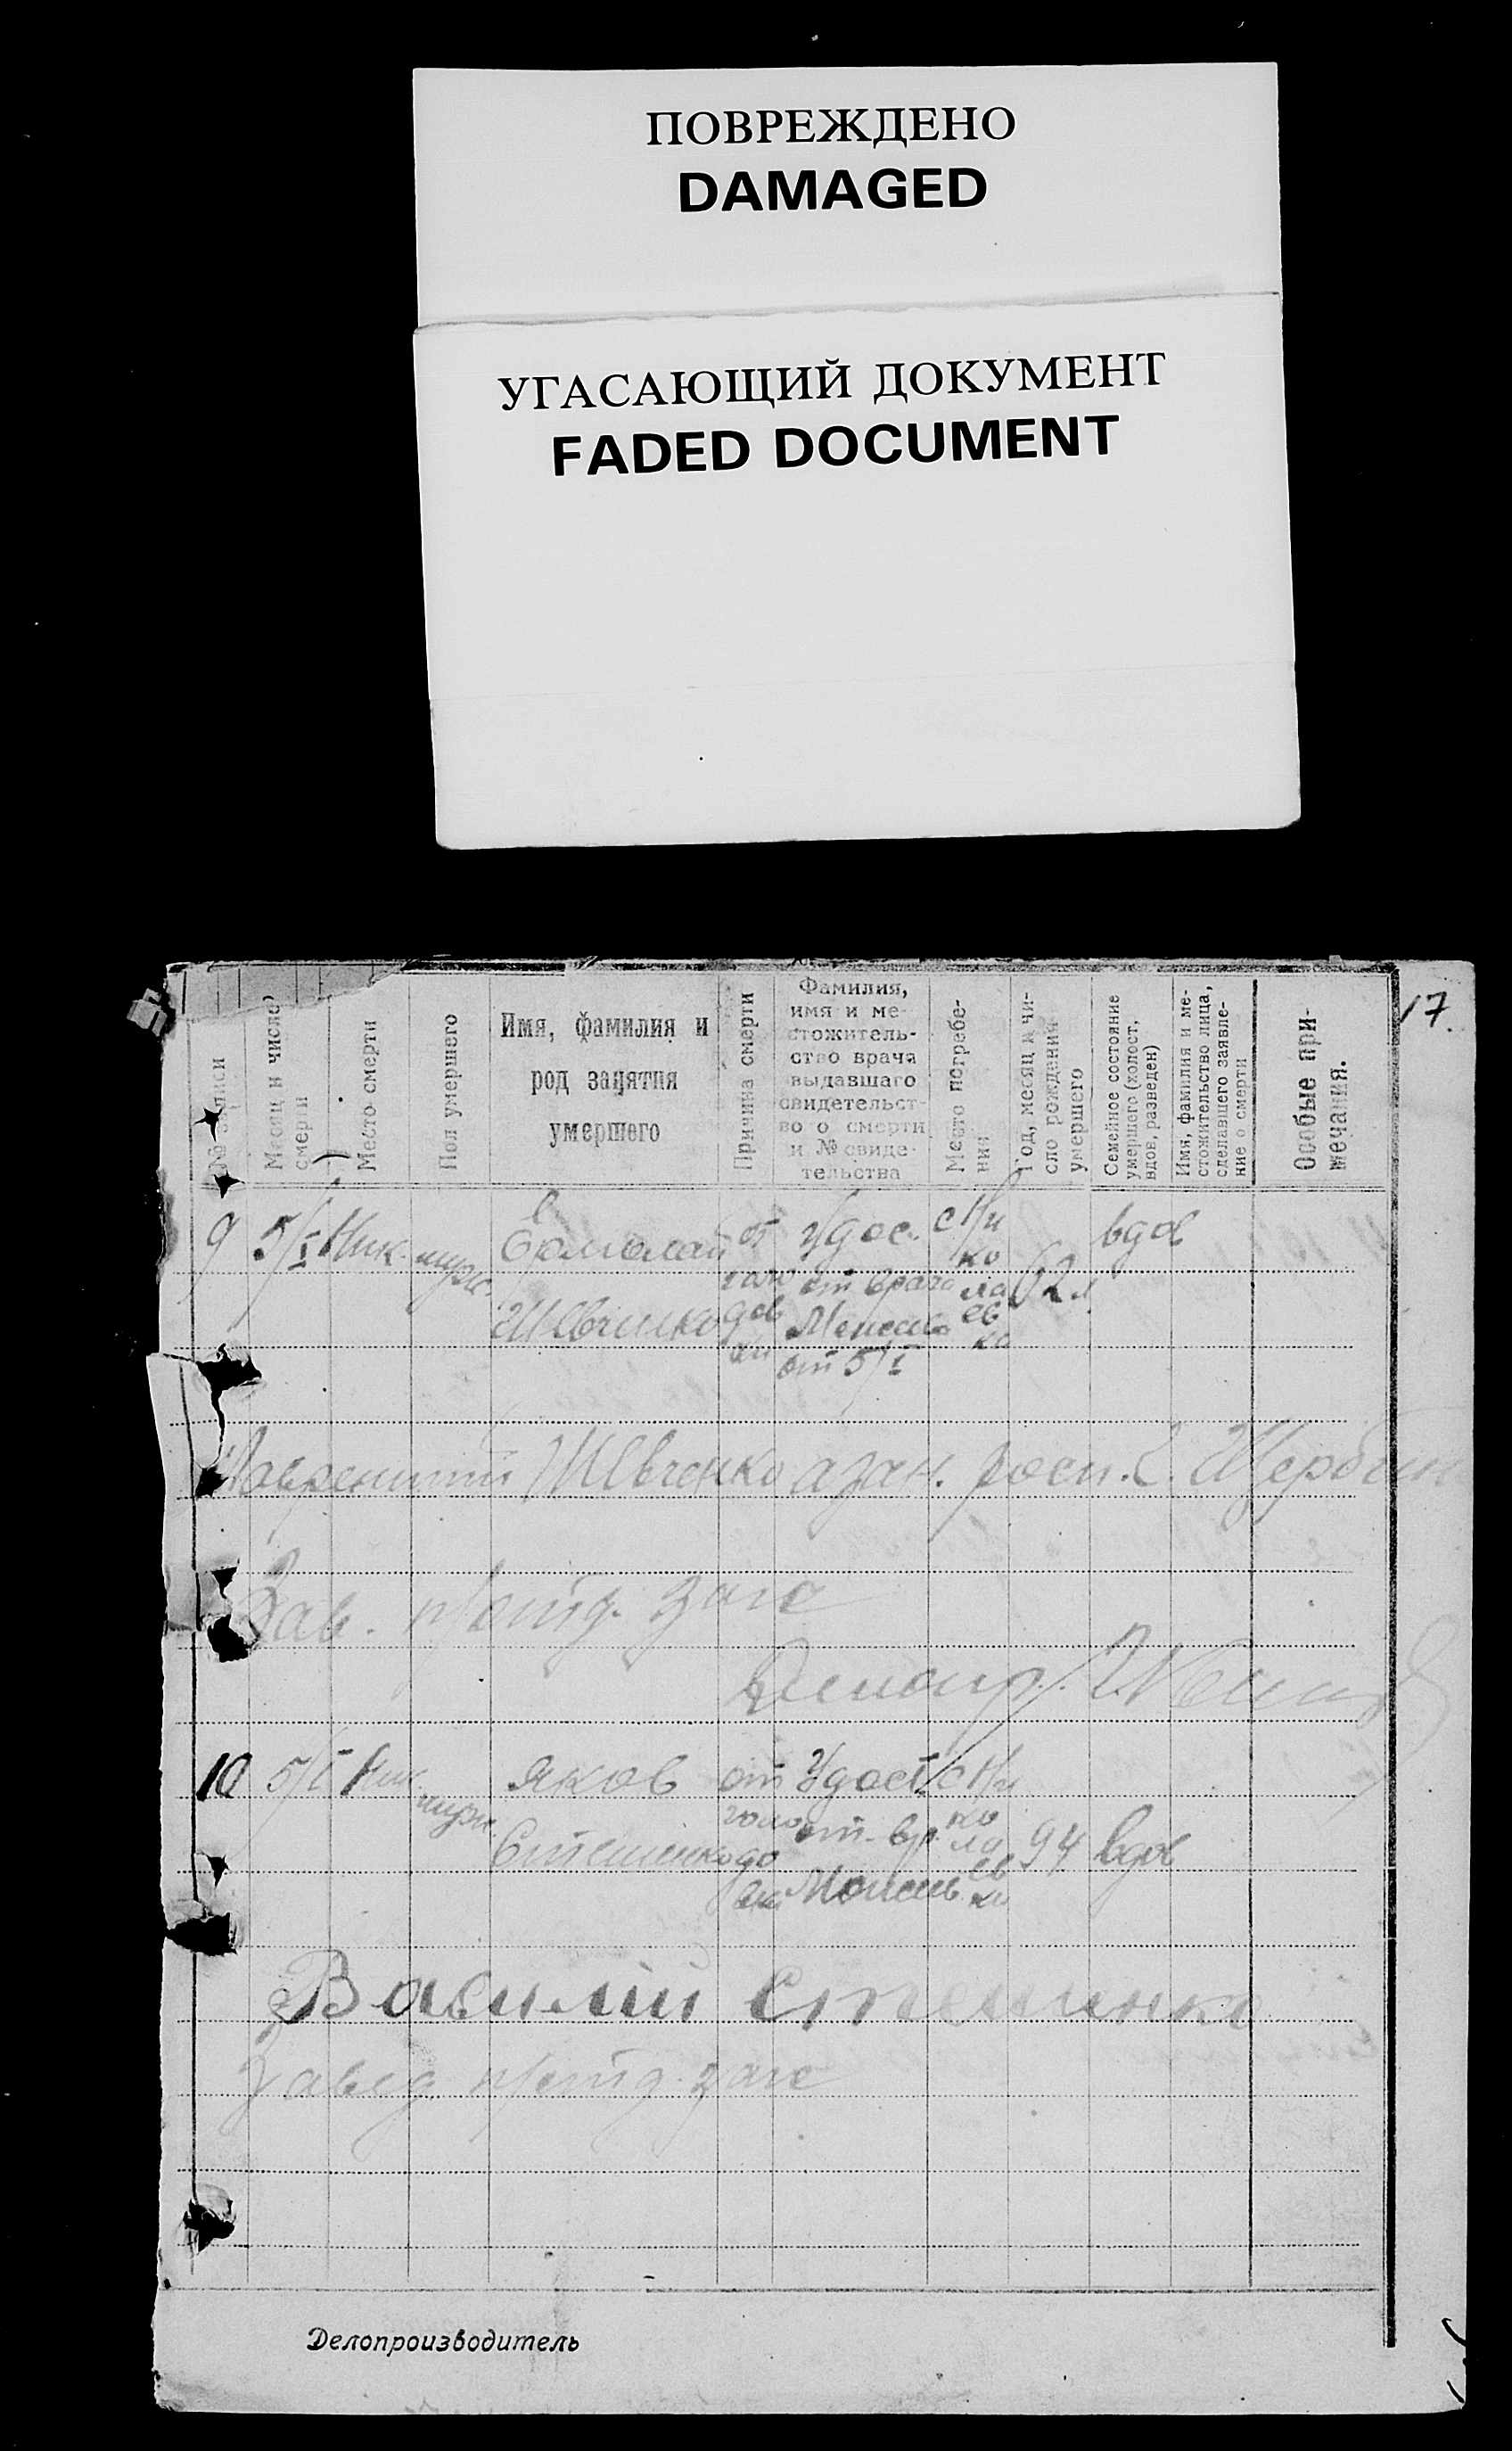 ПОВРЕЖДЕНО
DAMAGED
УГАСАЮЩИЙ ДОКУМЕНТ
FADED DOCUMENT
17.
№ записи
Месяц и число
смерти
Место смерти
Пол умершего
Имя, фамилия и
род занятия
умершего
Причина смерти
Фамилия,
имя и ме-
стожитель-
ство врача
выдавшаго
свидетельст-
во о смерти
и № свиде-
тельства
Место погребе-
ния
Год, месяц и чи-
сло рождения
умершего
Семейное состояние
умершего (холост,
вдов, разведен)
Имя, фамилия и ме-
стожительство лица,
сделавшего заявле-
ние о смерти
Особые при-
мечания.
9 5/I Ник. муж.
Ермолай
Шевченко
от
голо
дов
ки
Удос.
от врача
от 5/I
с Ни
ко
ла
ев
ка
62 л
вдов
Шевченко а за н. росп. Щербин
Зав. загс
10 5/I Ник. муж.
Яков
Стешенко
от
голо
до
Удост.
от вр.
с Ни
ко
ла
ев
ка
94 вдов
Василий Стешинко
Завед загс
Делопроизводитель